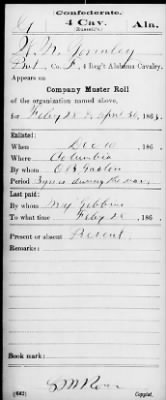 Confederate.
4 Cav.
Ala.
(Russell's)
W. M. Gormley
Pvt, Co. F, 4 Reg't Alabama Cavalry.
Appears on
Company Muster Roll
of the organization named above,
for Feby 28 to April 30, 1863.
Enlisted:
When Dec 10, 186
Where Columbia
By whom O.B. Gaston
Period 3 years during the war
Last paid:
By whom Maj Gibbons
To what time Feby 28, 186
Present or absent Present
Remarks:
Book mark:
(642)
Copyist.